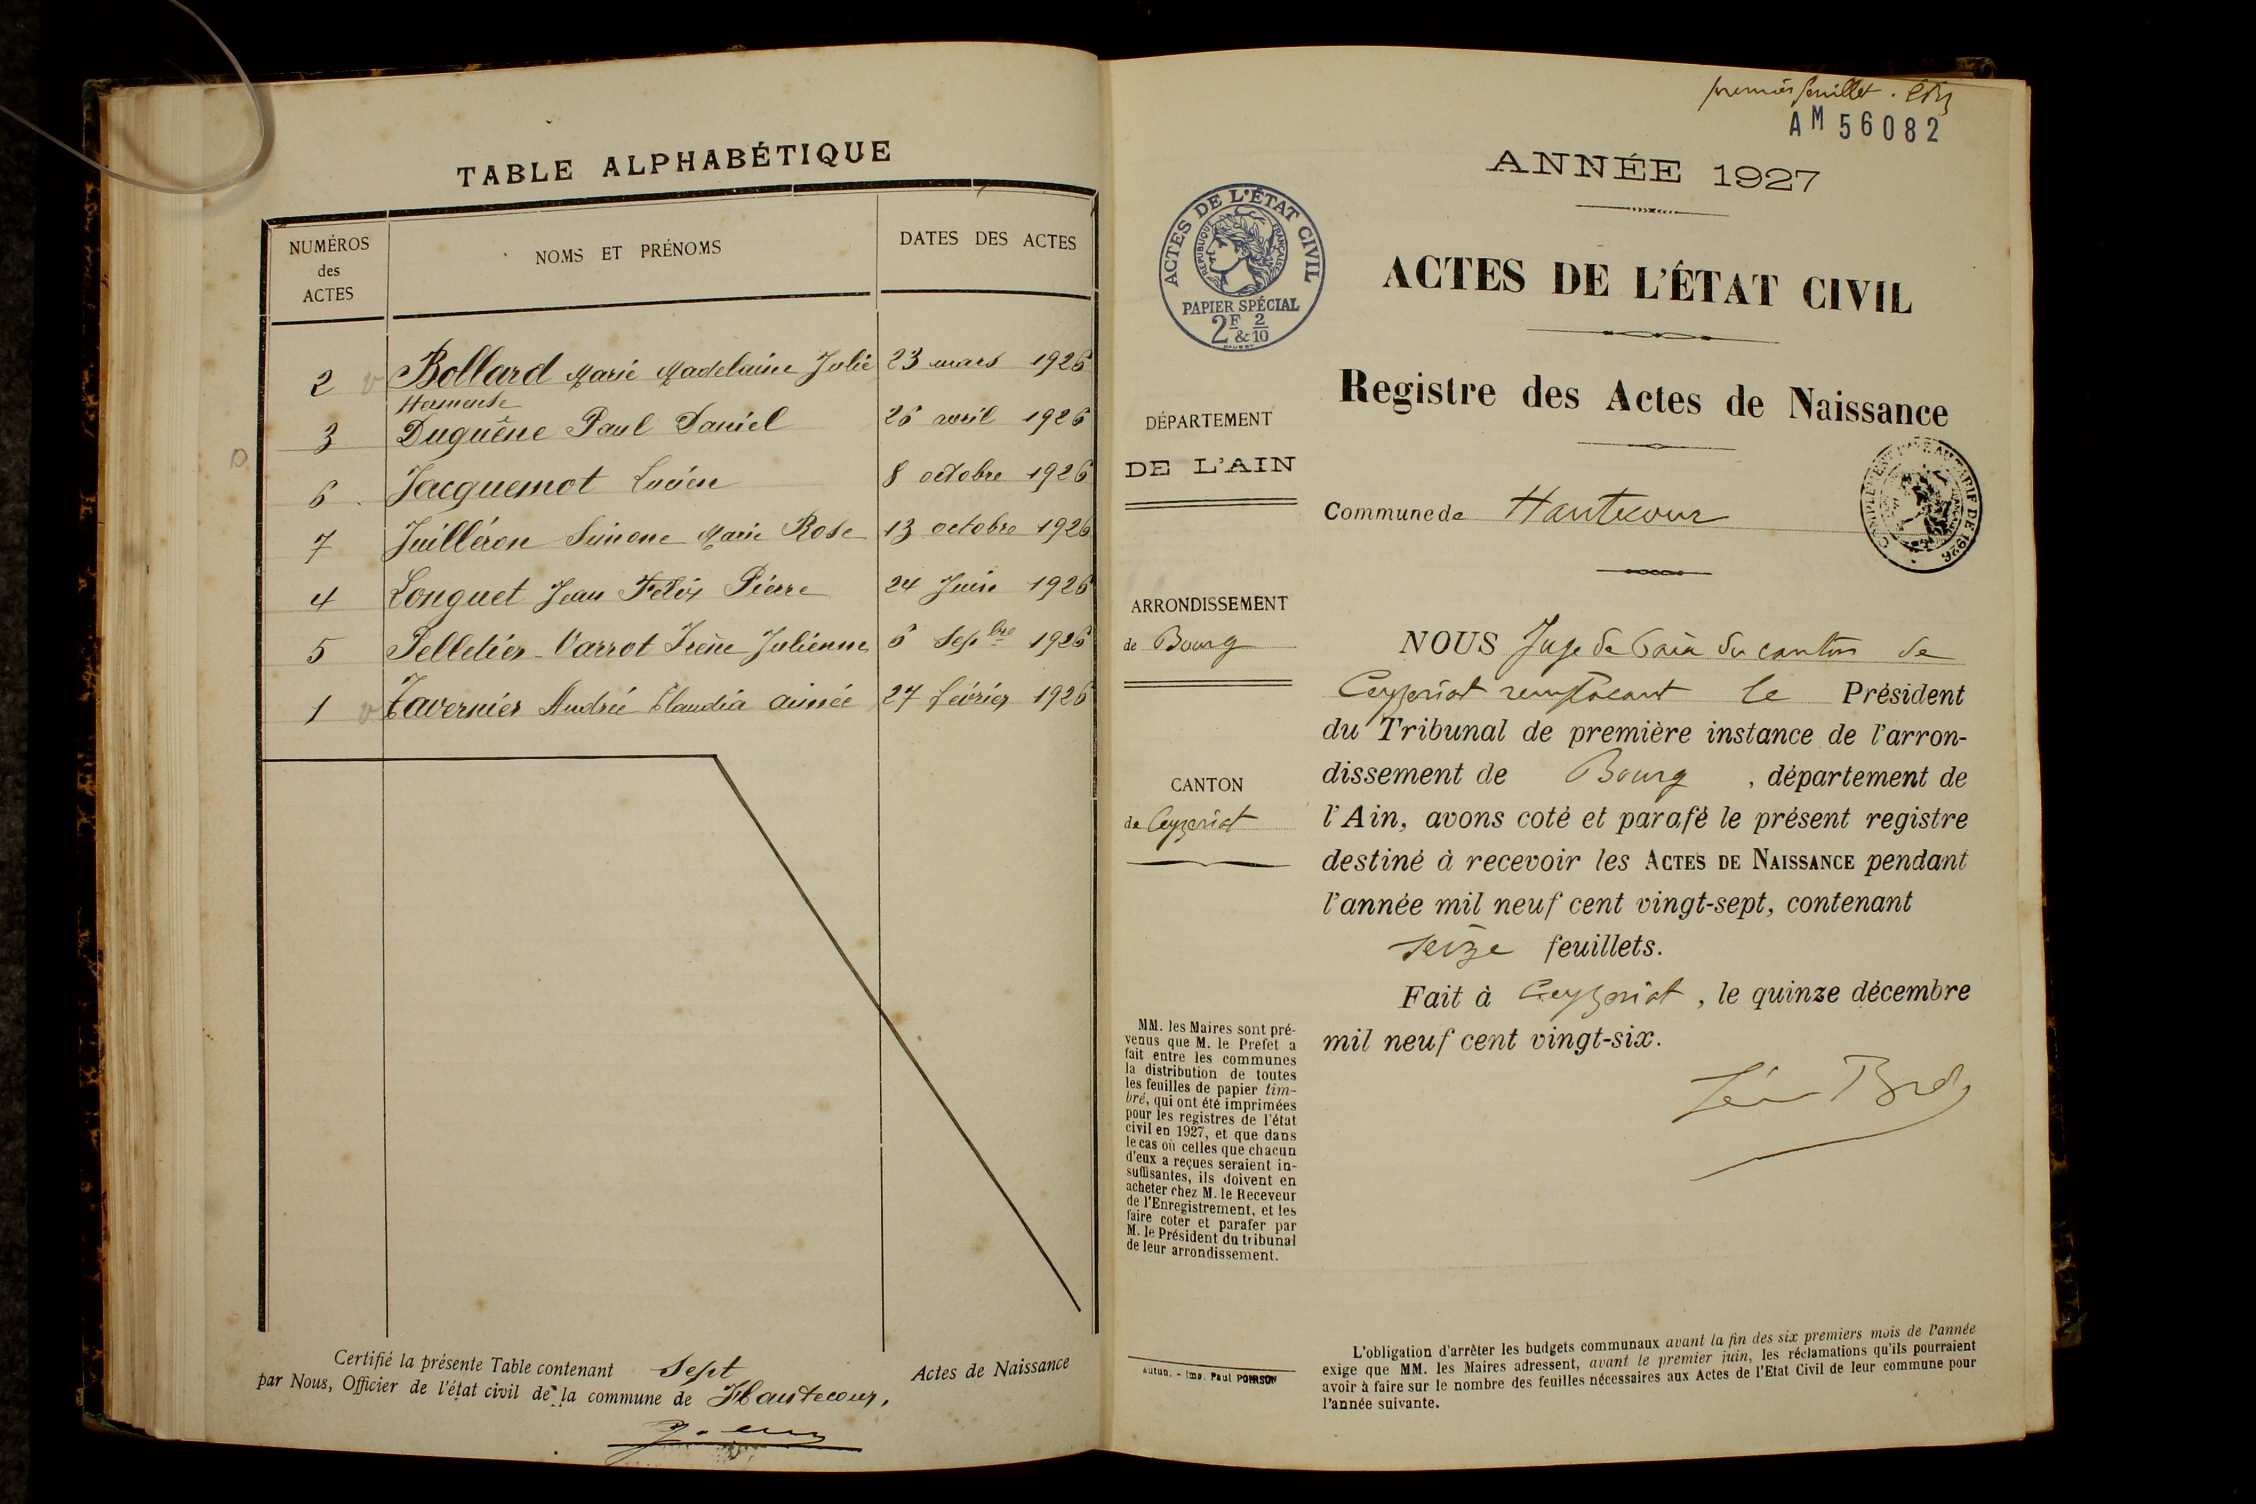 TABLE ALPHABÉTIQUE
NUMÉROS
des
ACTES
NOMS ET PRÉNOMS
DATES DES ACTES
2 Bollard Marie Madeleine Julie 23 mars 1926
Hermense
3 Duguêne Paul Daniel 26 avril 1926
6 Jacquemot Lucien 8 octobre 1926
7 Juilléron Simone Marie Rose 13 octobre 1926
4 Longuet Jean Félix Pierre 24 Juin 1926
5 Pelletier-Varrot Irène Julienne 6 Sepbre 1926
1 Tavernier Andrée Claudia aimée 27 février 1926
Certifié la présente Table contenant Sept Actes de Naissance
par Nous, Officier de l'état civil de la commune de Hautecour,
premier feuillet.
AM 56082
ANNÉE 1927
ACTES DE L'ÉTAT CIVIL
RÉPUBLIQUE FRANÇAISE
PAPIER SPÉCIAL
2F & 2/10
ACTES DE L'ÉTAT CIVIL
Registre des Actes de Naissance
DÉPARTEMENT
DE L'AIN
COMPLÉMENT TARIF DE 1926
Commune de Hautecour
ARRONDISSEMENT
de Bourg
CANTON
de Ceyzeriat
NOUS Juge de Paix du canton de
Ceyzeriat remplacant le Président
du Tribunal de première instance de l'arron-
dissement de Bourg, département de
l'Ain, avons coté et parafé le présent registre
destiné à recevoir les ACTES DE NAISSANCE pendant
l'année mil neuf cent vingt-sept, contenant
seize feuillets.
Fait à Ceyzeriat, le quinze décembre
mil neuf cent vingt-six.
MM. les Maires sont pré-
venus que M. le Préfet a
fait entre les communes
la distribution de toutes
les feuilles de papier tim-
bré, qui ont été imprimées
pour les registres de l'état
civil en 1927, et que dans
le cas où celles que chacun
d'eux a reçues seraient in-
suffisantes, ils doivent en
acheter chez M. le Receveur
de l'Enregistrement, et les
faire coter et parafer par
M. le Président du tribunal
de leur arrondissement.
Autun. - Imp. Paul POIRSON
L'obligation d'arrêter les budgets communaux avant la fin des six premiers mois de l'année
exige que MM. les Maires adressent, avant le premier juin, les réclamations qu'ils pourraient
avoir à faire sur le nombre des feuilles nécessaires aux Actes de l'Etat Civil de leur commune pour
l'année suivante.